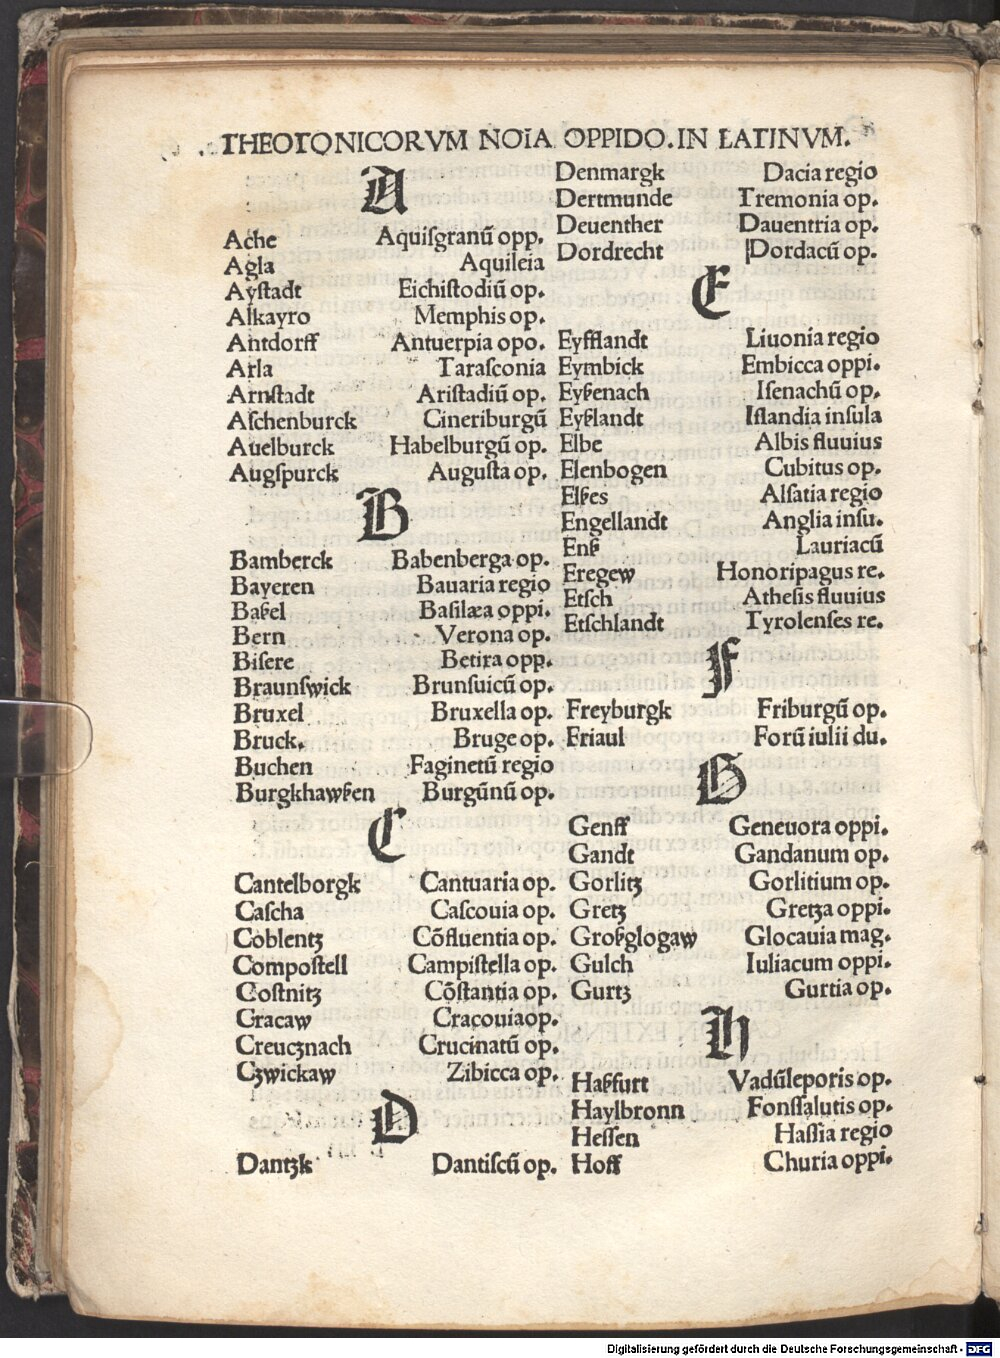 THEOTONICORVM NOĪA OPPIDO. IN LATINVM.
A
Ache Aquiſgranū opp.
Agla Aquileia
Ayſtadt Eichiſtodiū op.
Alkayro Memphis op.
Antdorff Antuerpia opo.
Arla Taraſconia
Arnſtadt Ariſtadiū op.
Aſchenburck Cineriburgū
Auelburck Habelburgū op.
Augſpurck Auguſta op.
B
Bamberck Babenberga op.
Bayeren Bauaria regio
Baßel Baſilæa oppi.
Bern Verona op.
Biſere Betira opp.
Braunſwick Brunſuicū op.
Bruxel Bruxella op.
Bruck. Bruge op.
Buchen Faginetū regio
Burgkhawßen Burgūnū op.
C
Cantelborgk Cantuaria op.
Caſcha Caſcouia op.
Coblentz Cōfluentia op.
Compoſtell Campiſtella op.
Coſtnitz Cōſtantia op.
Cracaw Cracouiaop.
Creucznach Crucinatū op.
Czwickaw Zibicca op.
D
Dantzk Dantiſcū op.
Denmargk Dacia regio
Dertmunde Tremonia op.
Deuenther Dauentria op.
Dordrecht Dordacū op.
E
Eyfflandt Liuonia regio
Eymbick Embicca oppi.
Eyßenach Iſenachū op.
Eyßlandt Iſlandia inſula
Elbe Albis fluuius
Elenbogen Cubitus op.
Elßes Alſatia regio
Engellandt Anglia inſu.
Enß Lauriacū
Eregew Honoripagus re.
Etſch Atheſis fluuius
Etſchlandt Tyrolenſes re.
F
Freyburgk Friburgū op.
Friaul Forū iulii du.
G
Genff Geneuora oppi.
Gandt Gandanum op.
Gorlitz Gorlitium op.
Gretz Gretza oppi.
Großglogaw Glocauia mag.
Gulch Iuliacum oppi.
Gurtz Gurtia op.
H
Haßfurt Vadūleporis op.
Haylbronn Fonſſalutis op.
Heſſen Haſſia regio
Hoff Churia oppi.
Digitalisierung gefördert durch die Deutsche Forschungsgemeinschaft - DFG